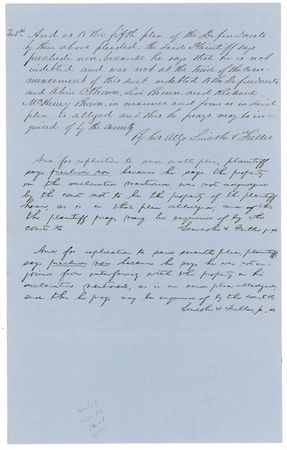 To 5th And as to the fifth plea of the Defendants
by them above pleaded, the said Plaintiff says
preclude non, because he says that he is not
indebted and was not at the time of the com-
mencement of this suit indebted to the Defendants
and Brown, Brown and Richard
McHenry Brown, in manner and form as in said
plea is alleged and this he prays may be in-
quired of by the county
By his Attys Lincoln & 
And for replication to said plea, plaintiff
says precludi non because he says the property
in the declaration mentioned was not
by the court not to be the property of the plaintiff
as is in that plea alleged, and of this
the plaintiff prays may be enquired of by the
court &c
Lincoln & p.q.
And for replication to said seventh plea plaintiff
says precludi non because he says he was not en-
joined from interfering with the property in the
declaration mentioned, as is in said plea alleged,
and this he prays may be enquired of by the court &c
Lincoln & p.q.